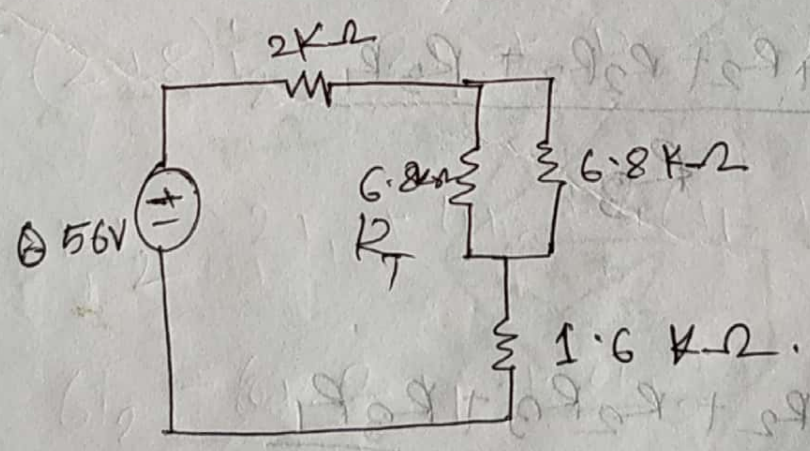 2KΩ
6.8KΩ
6.8KΩ
R_T
56V
+
−
1.6 KΩ.